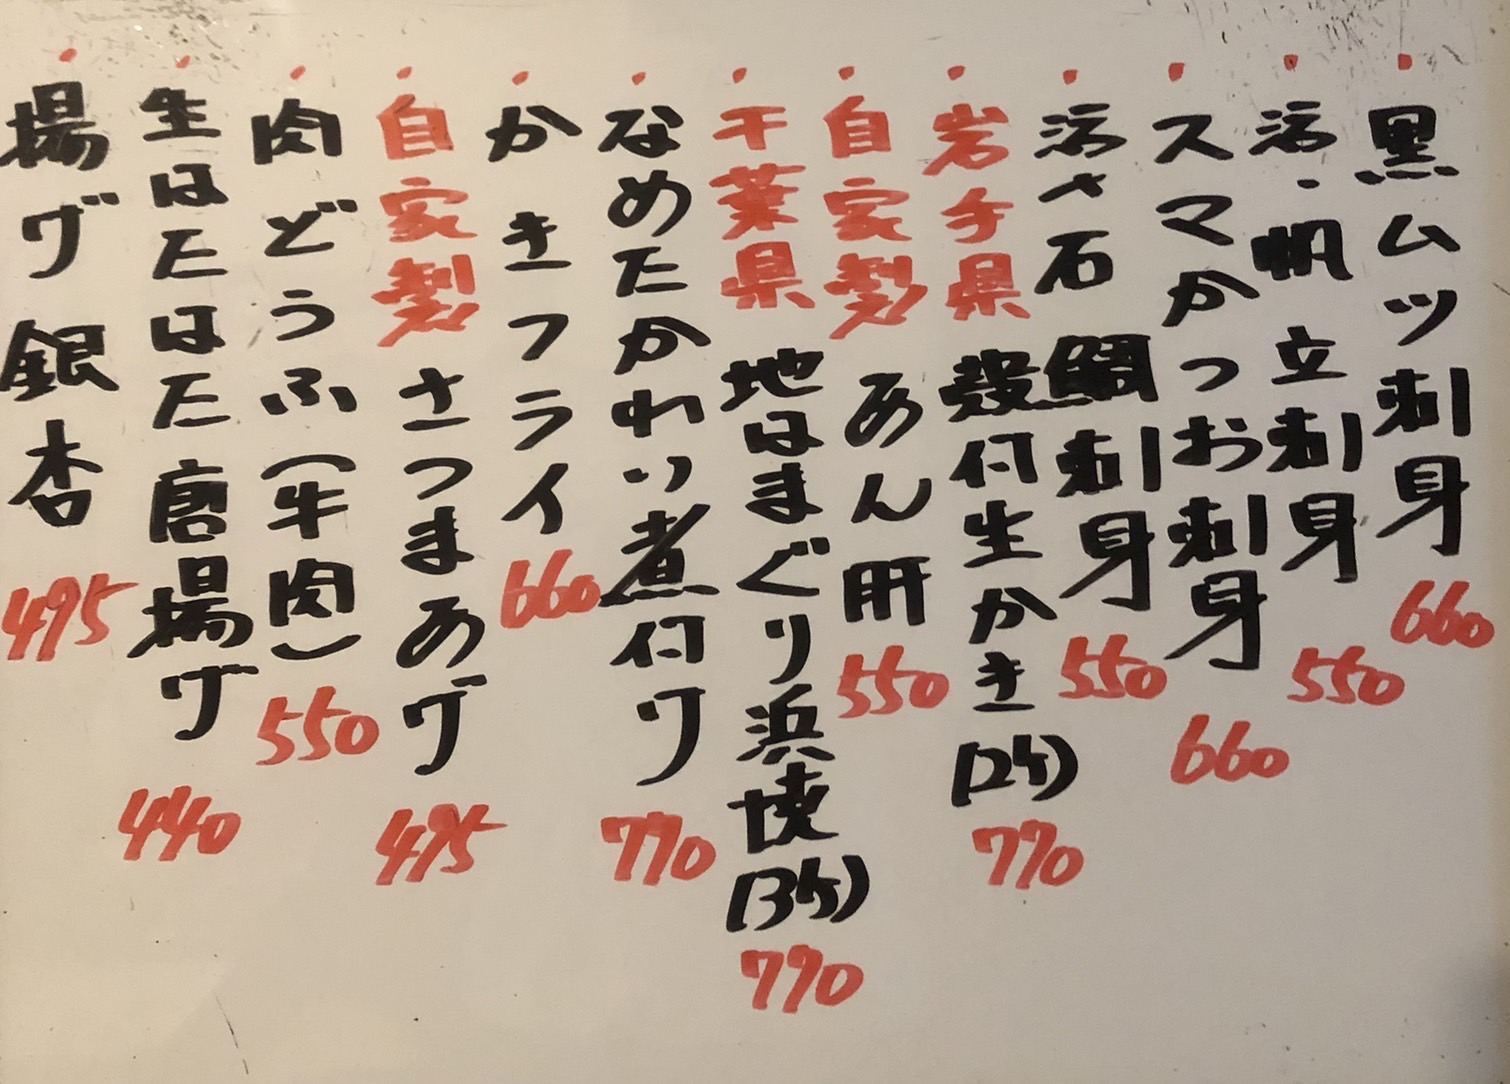 ・黒ムツ刺身 660
・活・帆立刺身 550
・スマかつお刺身 660
・活〆石鯛刺身 550
・岩手県 殻付生かき(2ケ) 770
・自家製 あん肝 550
・千葉県 地はまぐり浜焼(3ケ) 770
・なめたかれい煮付ケ 770
・かきフライ 660
・自家製 さつまあゲ 495
・肉どうふ(牛肉) 550
・生はたはた唐揚ゲ 440
・揚ゲ銀杏 495